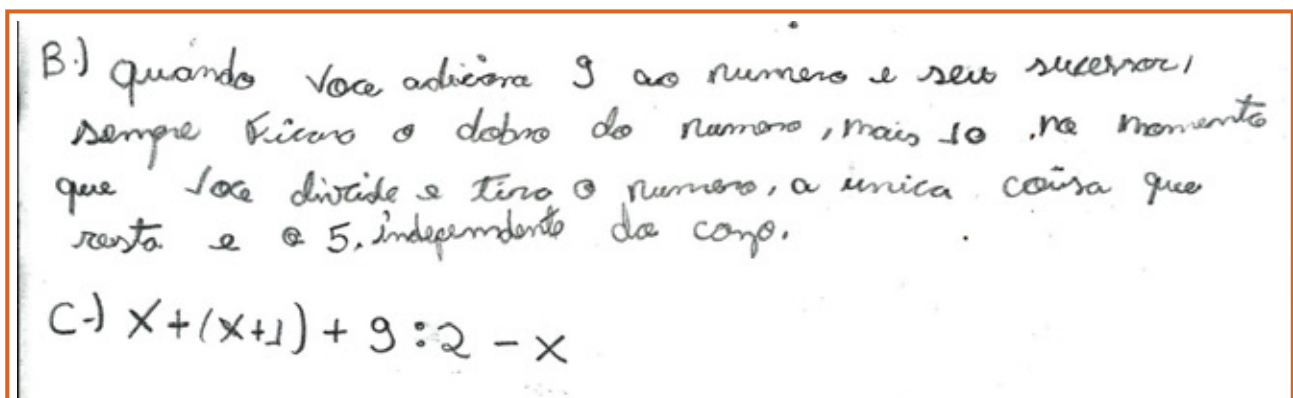 B.) quando voce adiciona 9 ao numero e seu sucessor,
sempre ficara o dobro do numero, mais 10 .no momento
que voce divide e tira o numero, a unica coisa que
resta e o 5, independente do
C-) X+(X+1) + 9 : 2 - X